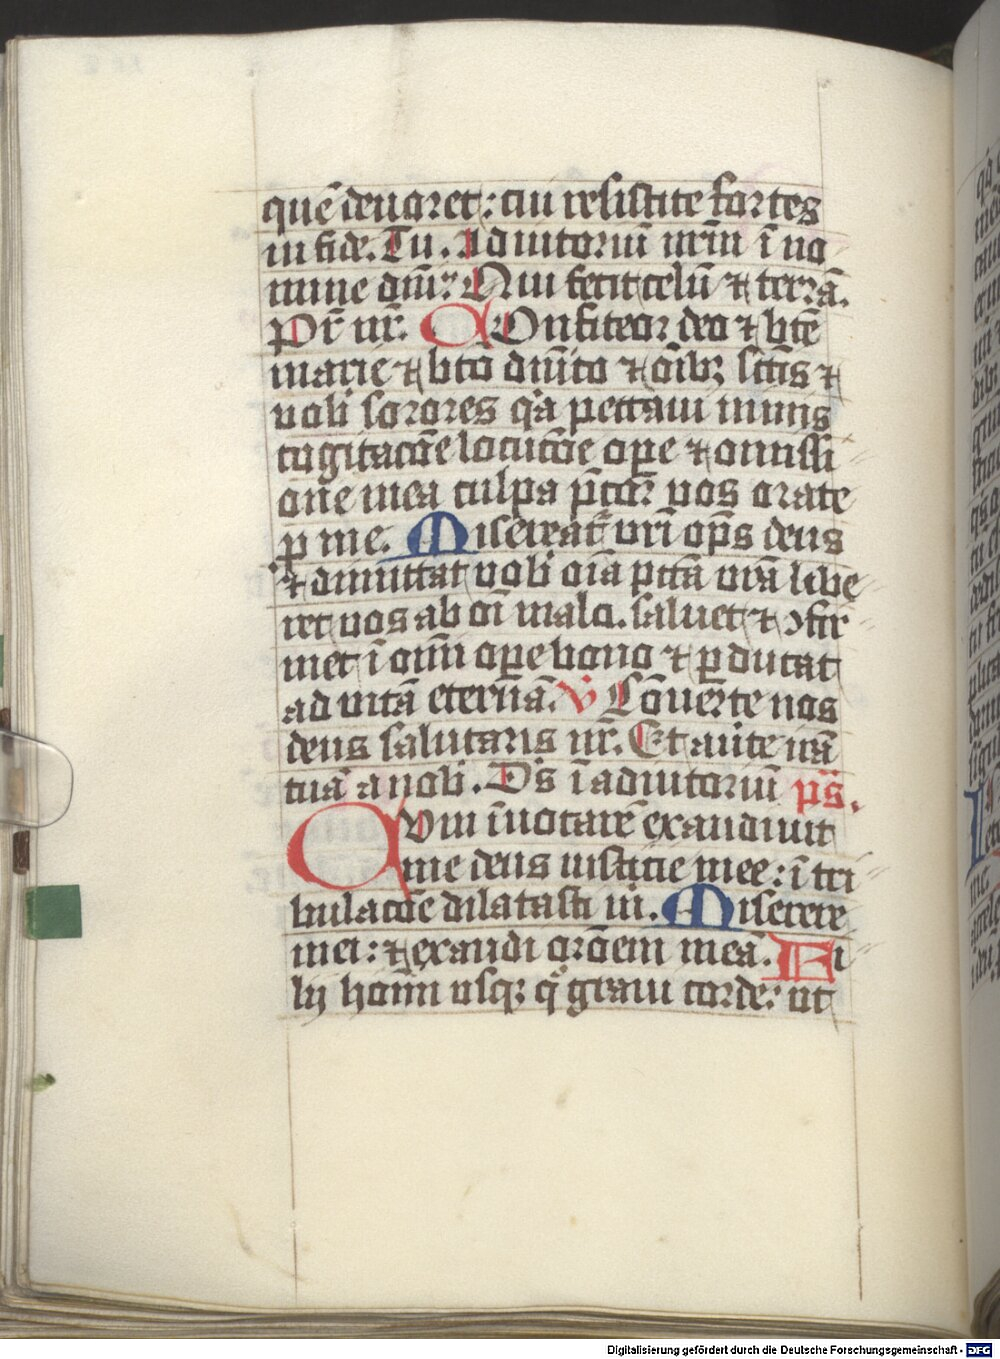 quē deuoret: cui resistite fortes
in fide. Tu. Adiutoriū nr̄m ī no
mine dn̄i: Qui fecit celū ⁊ terrā.
Pr̄ nr̄. COnfiteor deo ⁊ btē
marie ⁊ bto dn̄ico ⁊ oīb₃ sctīs ⁊
uob̄ sorores qa peccaui nimis
cogitacōe locucōe ope ⁊ omissi
one mea culpa p̄cor vos orate
ꝑ me. Misereat᷑ vr̄i op̄s deus
⁊ dimittat uob̄ oīa pctā vr̄a libe
ret uos ab oī malo. saluet ⁊ ↄfir
met ī om̄i oꝑe bono ⁊ ꝑducat
ad uitā eternā. v̄ Cōuerte nos
deus salutaris nr̄. Et auīte irā
tuā a nob̄. Ds̄ ī adiutoriū ps̄.
CVm īuocarē exaudiuit
me deus iusticie mee: ī tri
bulacōe dilatasti m̄. Miserere
mei: ⁊ exaudi orōem meā. Fi
lij homī usq₃ qͦ graui corde: ut
Digitalisierung gefördert durch die Deutsche Forschungsgemeinschaft - DFG